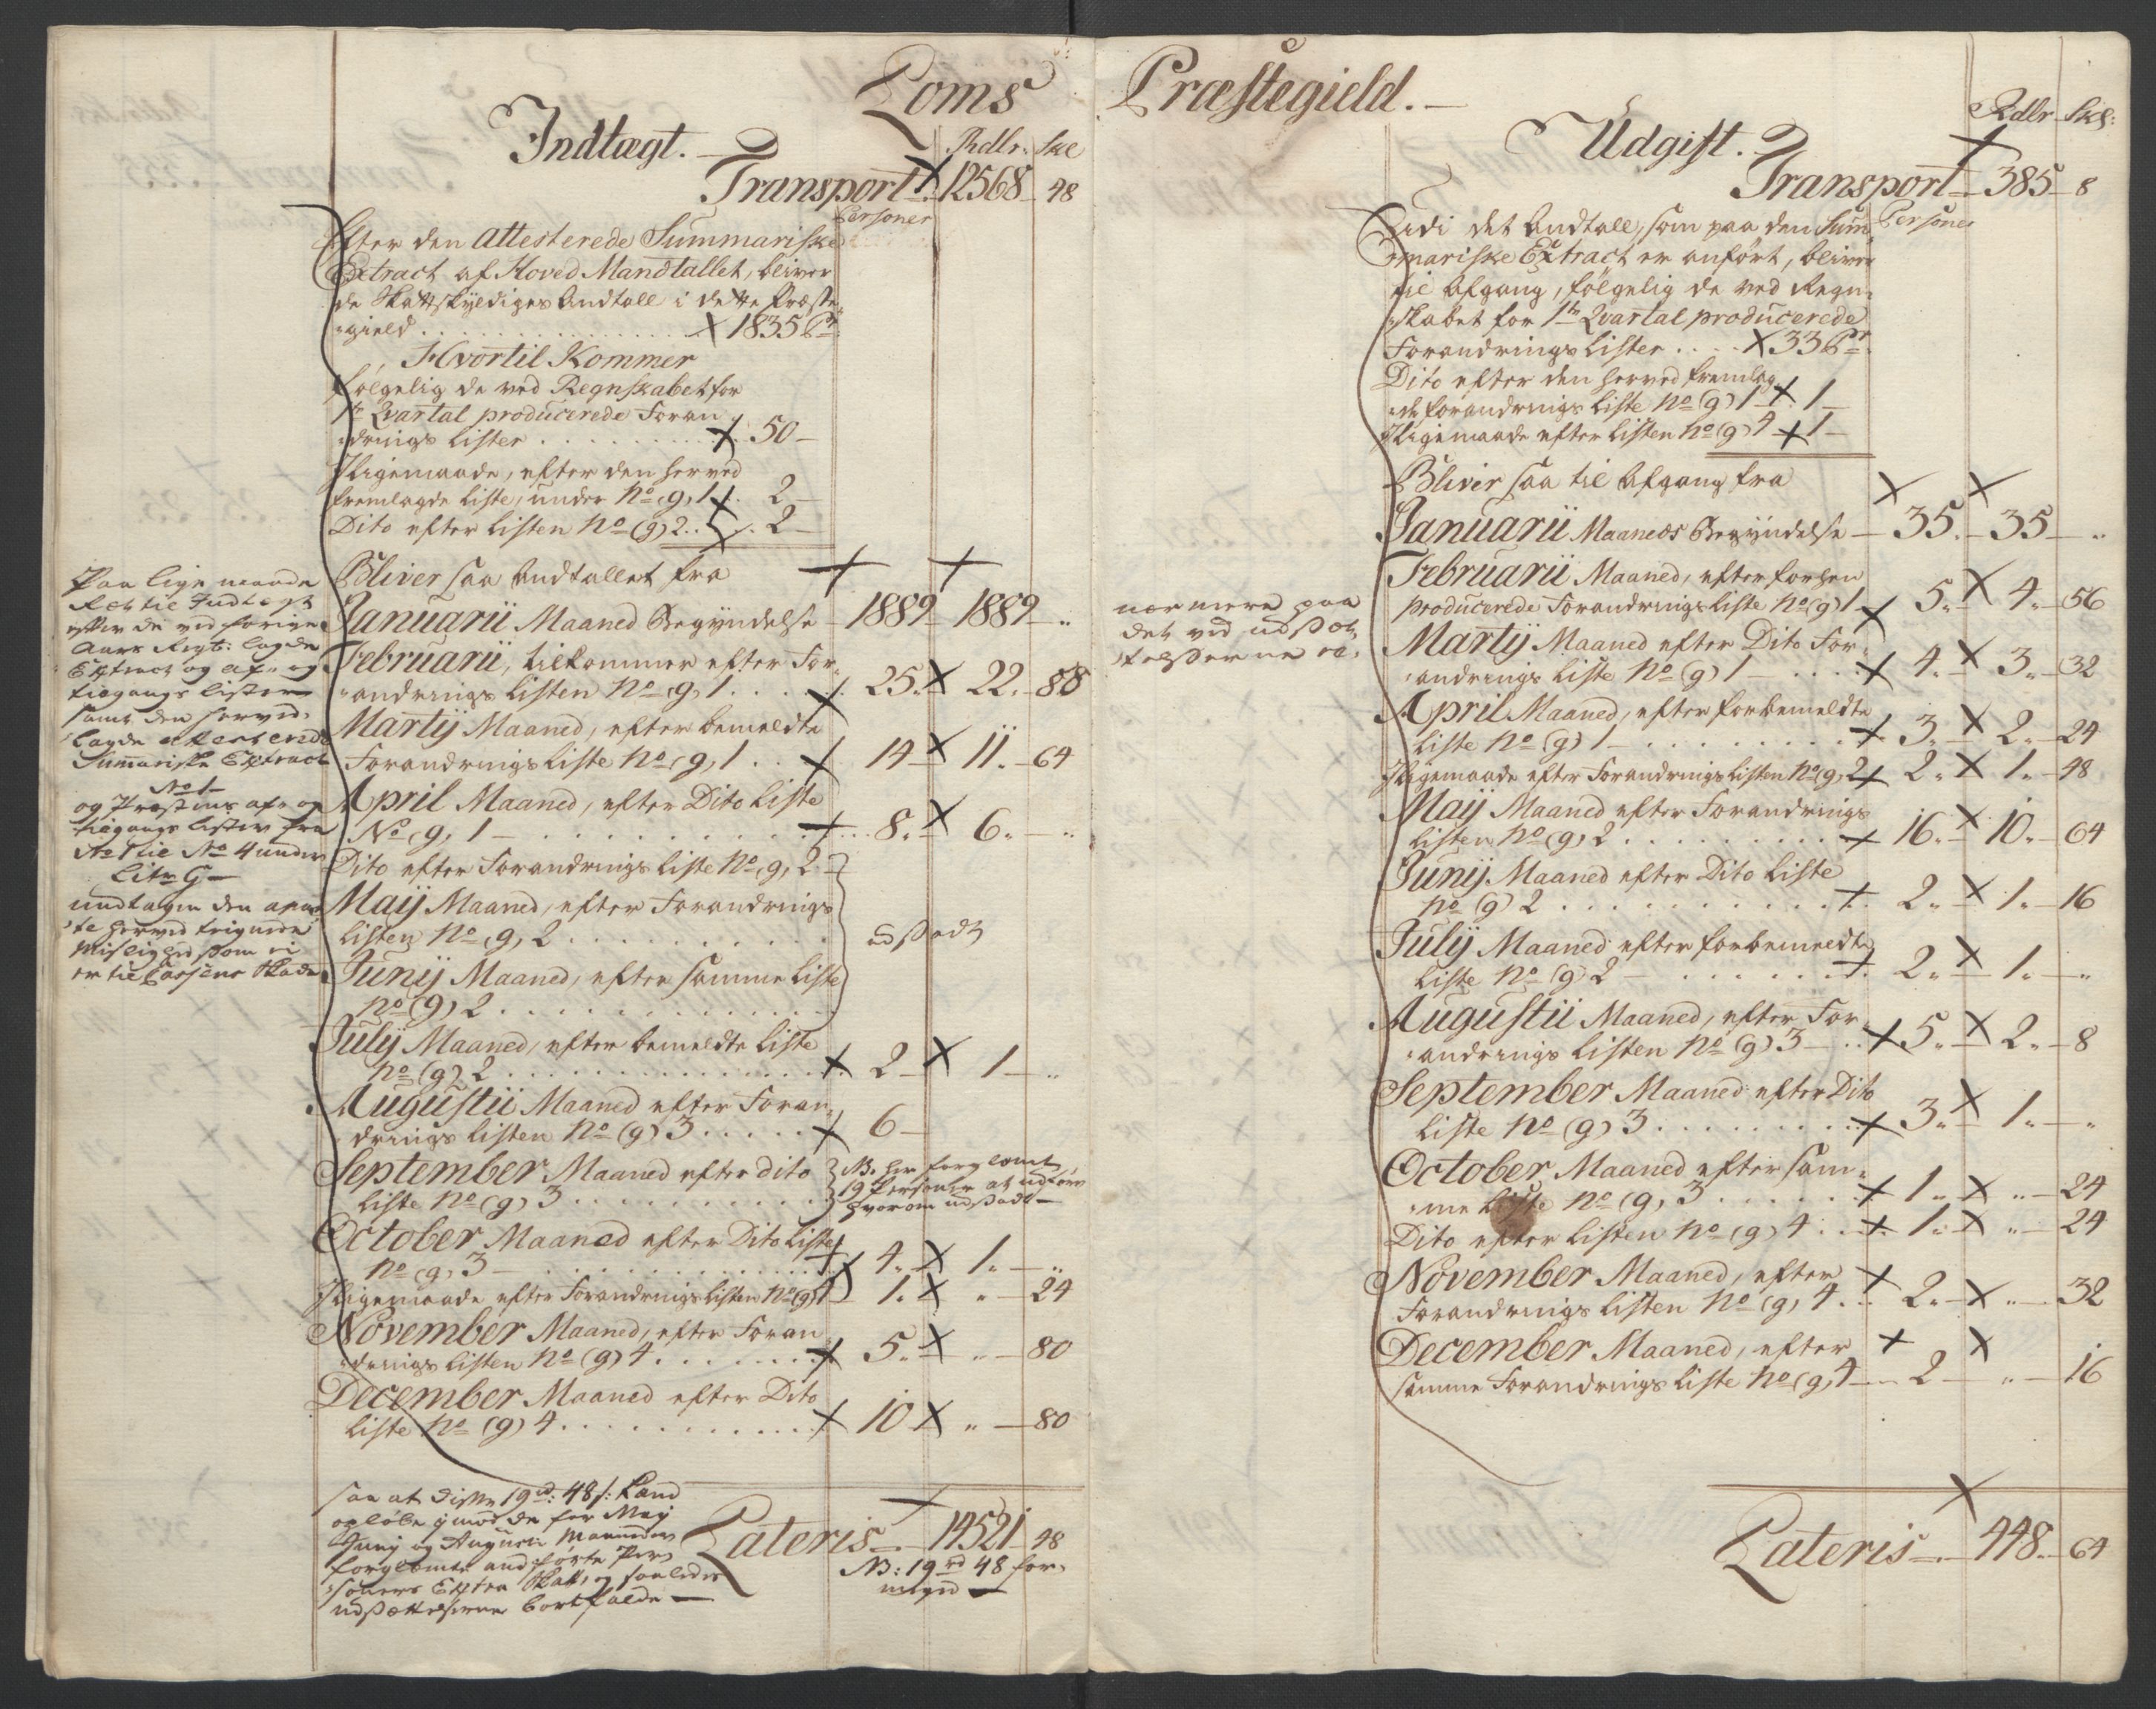 Loms
Indtægt.
Rdlr. Skl
Transport 12568 48
Personer
Efter den Attesterede Summariske
Extract af Hoved Mandtallet, bliver
de Skattskyldiges Andtall i dette Præste
gield . . . 1835 Pr:
Hvortil Kommer
følgelig de ved Regnskabet for
1te Qvartal producerede Foran
drings lister . . . 50
Iligemaade, efter den herved
fremlagde Liste, under No (g) 1 . 2
Dito efter Listen No (g) 2 . . 2
Bliver saa Andtallet fra
Januarii Maaned Begyndelse 1889 1889 "
Februarii, tilkommer efter For
andrings Listen No (g) 1 . . . 25. 22. 88
Martij Maaned, efter bemeldte
Forandrings Liste No (g) 1 . . 14 11. 64
April Maaned, efter Dito Liste
No (g) 1 . . . 8. 6. "
Dito efter Forandrings Liste No (g) 2
Maij Maaned, efter Forandrings
Listen No (g) 2 . . . udsadt
Junij Maaned, efter samme Liste
No (g) 2 . . .
Julij Maaned, efter bemeldte Liste
No (g) 2 . . . 2 1 "
Augustii Maaned efter Foran
drings Listen No (g) 3 . . . 6
September Maaned efter dito
Liste No (g) 3 . . .
NB. her forglemt
19 Personer at udføre
hvorom udsadt
October Maaned efter Dito Liste
No (g) 3 . . . 4. 1. "
Iligemaade efter Forandrings Listen No (g) 4 1. " 24
November Maaned, efter Foran
drings Listen No (g) 4 . . . 5. " 80
December Maaned efter Dito
Liste No (g) 4 . . . 10 " 80
Lateris 14521 48
NB: 19 rd 48 for
meget
Paa lige maade
Rett til Indtægt
efter de ved forrige
Aars Regt: lagde
Extract og af- og
tilgangs lister
samt den herved
lagde attesterede
Summariske Extract
No 1
og Præstens af- og
tilgangs lister fra
No 1 til No 4 under
Litr G
undtagen den
te herved
Mislighed som
er til Cassens Skade
saa at disse 19 rd: 48 s: kand
opløbe imod de for Maij
Junij og Augusti Maaneder
forglemte andførte Per
soners Extra Skatt, og saaledes
udsættelserne bortfalde
Præstegield.
Udgift.
Rdlr Skl:
Transport 385 8
Personer
det Andtall, som paa den Sum
mariske Extract er anført, bliver
til Afgang, følgelig de ved Regn
skabet for 1te Qvartal producerede
Forandrings Lister . . . 33 Pr
Dito efter den herved fremlag
de forandrings Liste No (g) 1 . 1
Iligemaade efter Listen No (g) 4 1
Bliver saa til Afgang fra
Januarii Maaneds Begyndelse 35. 35 "
Februarii Maaned, efter forhen
producerede Forandrings Liste No (g) 1 5. 4. 56
Martij Maaned efter Dito For
andrings Liste No (g) 1 . . . 4. 3. 32
April Maaned, efter forbemeldte
Liste No (g) 1 . . . 3. 2. 24
Iligemaade efter Forandrings Listen No (g) 2 2. 1. 48
Maij Maaned efter Forandrings
Listen No (g) 2 . . . 16. 10. 64
Junij Maaned efter Dito Liste
No (g) 2 . . . 2. 1. 16
Julij Maaned efter forbemeldte
Liste No (g) 2 . . . 2. 1. "
Augustii Maaned, efter For
andrings Listen No (g) 3 . . 5. 2. 8
September Maaned efter Dito
Liste No (g) 3 . . . 3. 1. "
October Maaned efter sam
me Liste No (g) 3 . . . 1. " 24
Dito efter Listen No (g) 4 . . 1. " 24
November Maaned, efter
Forandrings Listen No (g) 4 . . 2. " 32
December Maaned, efter
samme Forandrings Liste No (g) 4 2 " 16
Lateris 448. 64
nærmere paa
det ved udsæt
telserne